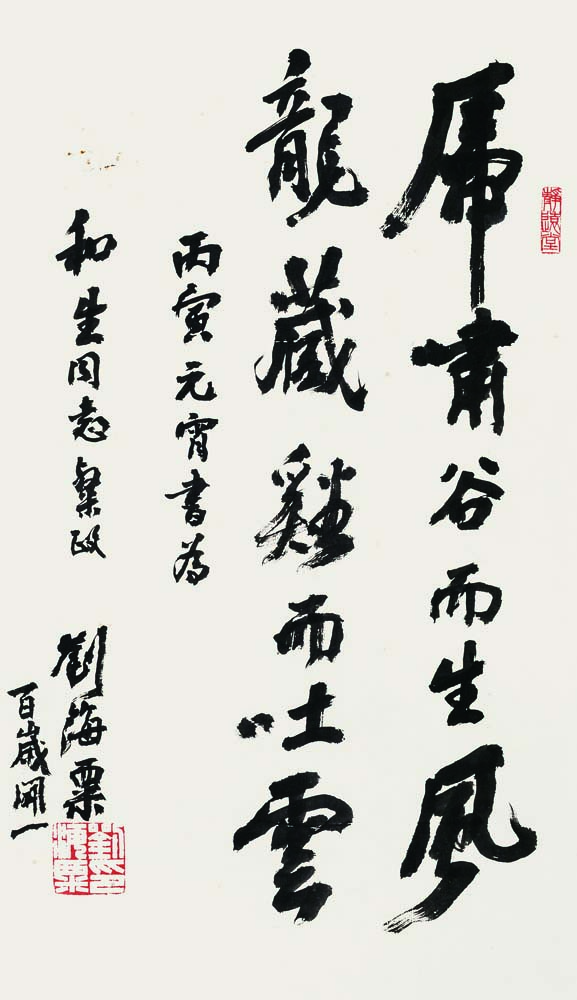 靜遠堂
虎嘯谷而生風
龍藏谿而吐雲
丙寅元宵書為
和生同志粲政
劉海粟
百歲開一
劉海粟印